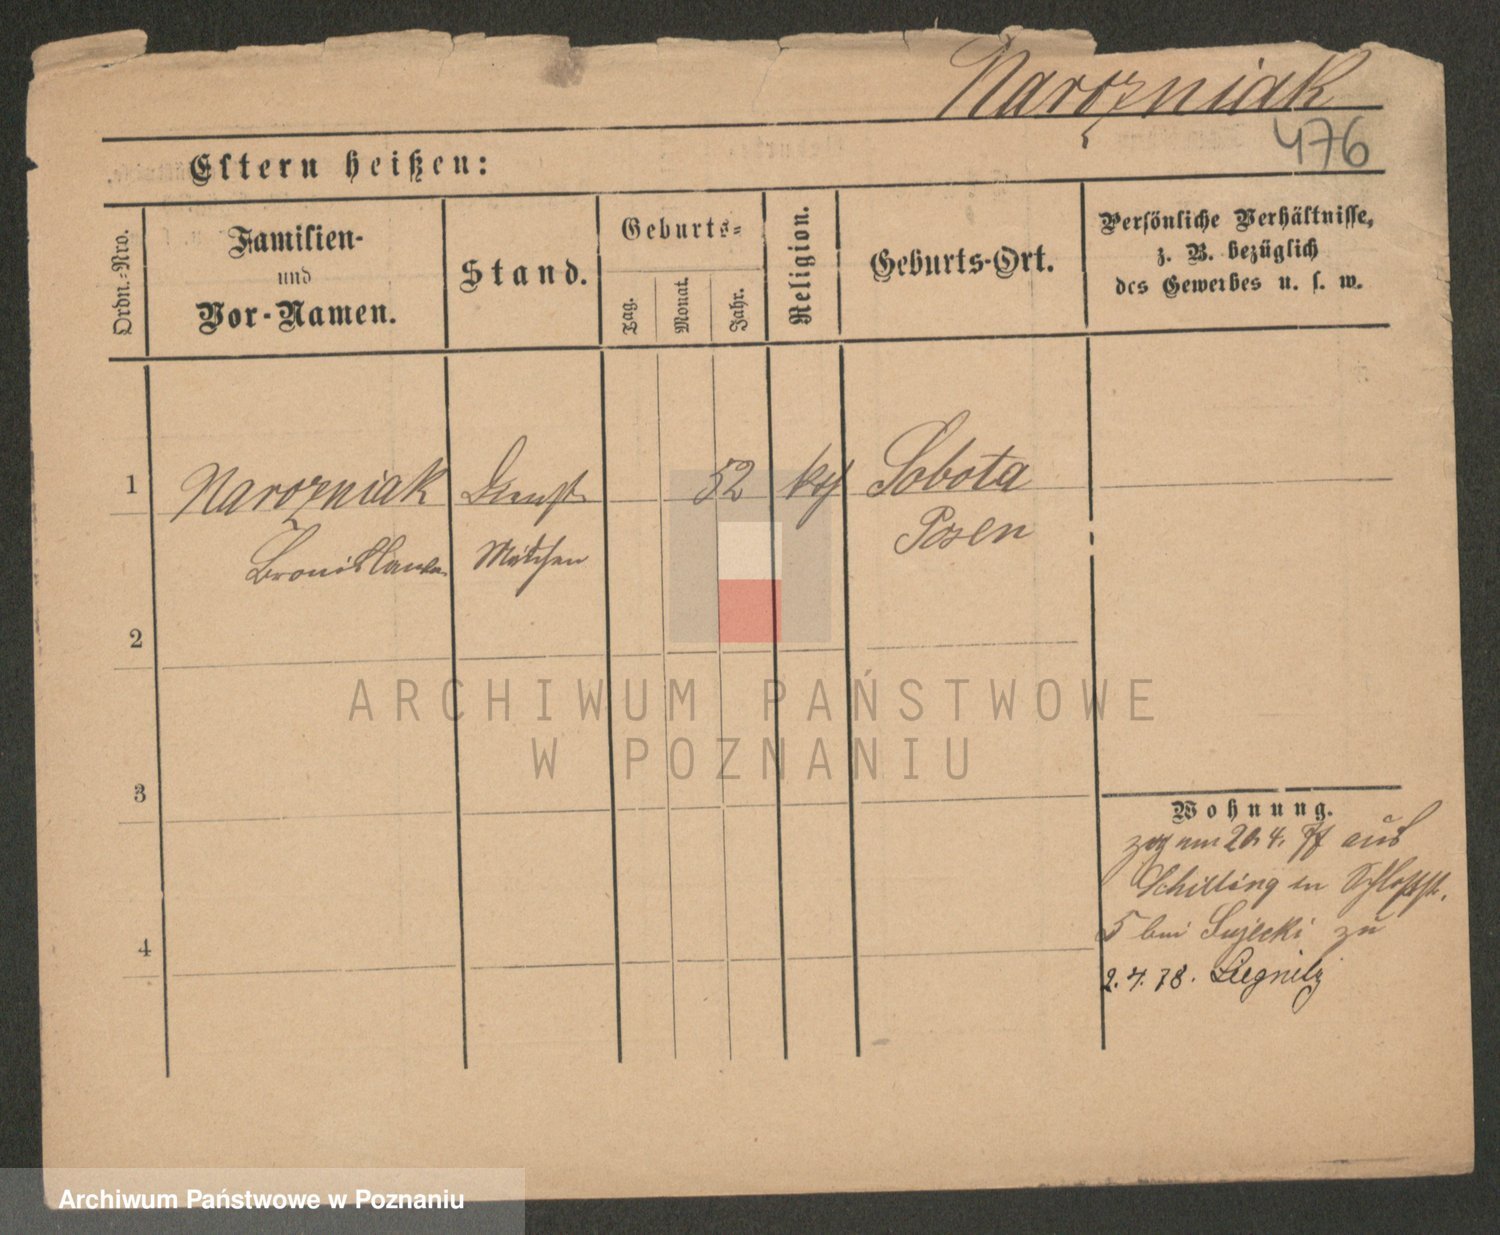 Narozniak
476
Eltern heißen:
Ordn.-Nro.
Familien-
und
Vor-Namen.
Stand.
Geburts-
Tag.
Monat.
Jahr.
Religion.
Geburts-Ort.
Persönliche Verhältnisse,
z. B. bezüglich
des Gewerbes u. s. w.
1 Narozniak Dienst 52 kth Sobota
Bronislawa Mädchen Posen
2
3
4
Wohnung.
zog am 20. 4. 77 aus
Schilling in Schloßstr.
5 bei Sujecki zu
2. 4. 78. Liegnitz
ARCHIWUM PAŃSTWOWE
W POZNANIU
Archiwum Państwowe w Poznaniu